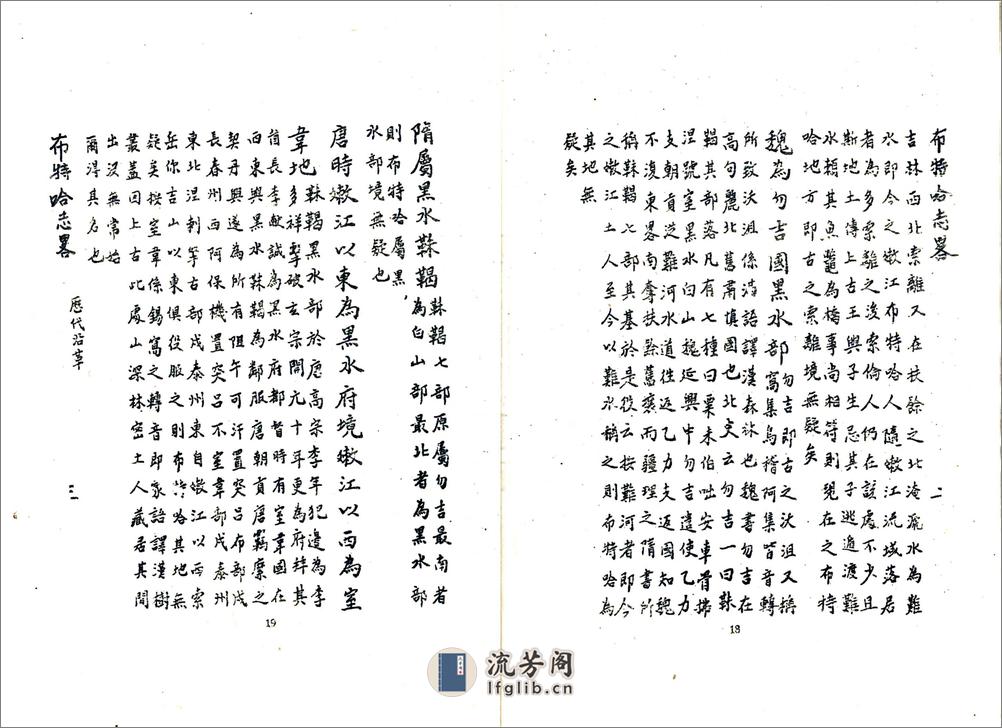 布特哈志畧
二
吉林西北索離又在扶餘之北淹㴲水為難
水即今之嫩江布特哈人隨嫩江流域落居
者為多索離之後索倫人仍在該處不少且
斯地土傳上古王興子生忌其子逃遁渡難
水賴其魚鼈為橋事尚相符則現在之布特
哈地方即古之索離境無疑矣
魏為勿吉國黑水部窩集烏稽阿集皆音轉
勿吉即古之沃沮又稱
所致沃沮係滿語譯漢森林也魏書勿吉在
高句麗北舊肅填國也北史云勿吉一曰靺
鞨其部落凡有七種曰粟末伯咄安車骨拂
涅號室黑水白山魏延興中勿吉遣使乙力
支朝貢泝難河水道徃返乙力支還國知魏
不復東畧南奪扶餘舊壤而疆理之隋書所
稱靺鞨七部其基於是役云按難河者即今
之嫩江土人至今以難水稱之則布特哈為
其地無
疑矣
18
隋屬黑水靺鞨
靺鞨七部原屬勿吉最南者
為白山部最北者為黑水部
則布特哈屬黑
水部境無疑也
唐時嫩江以東為黑水府境嫩江以西為室
韋地
靺鞨黑水部於唐高宗李年犯邊為李
多祚擊破玄宗開元十年更為府拜其
酋長李獻誠為黑水府都督時有室韋國在
西東與黑水靺鞨為鄰服唐朝貢唐羈縻之
契丹興遂為所有阻午可汗置突呂布部戍
長春州西阿保機置突呂不室韋部戍泰州
東北涅剌拏古部戍泰州東自嫩江以西索
岳你吉山以東俱役服之則布特哈其地無
疑矣按室韋係錫窩之轉音即蒙語譯漢樹
叢蓋因上古此處山深林密土人藏居其間
出没無常始
爾得其名也
布特哈志畧
歷代沿革
三
19
流芳阁
lfglib.cn